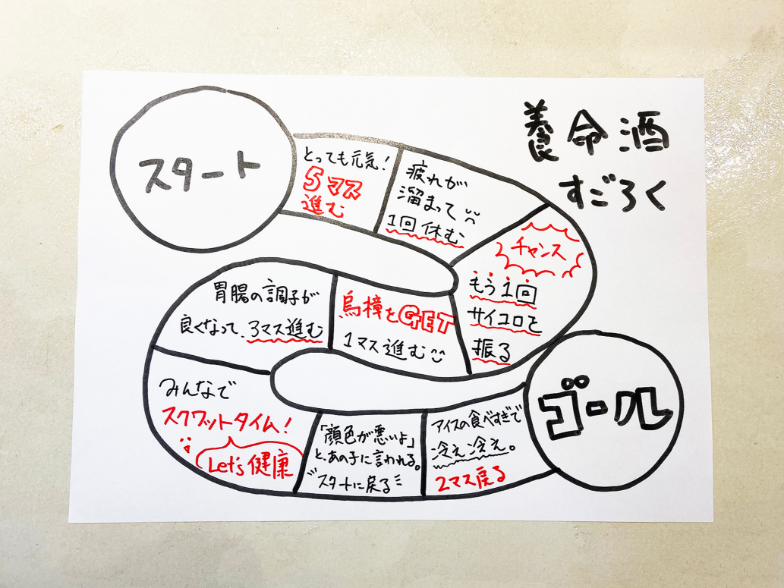 養命酒
すごろく
スタート
とっても元気!
5マス
進む
疲れが
溜まって
1回休む
チャンス
もう1回
サイコロを
振る
烏樟をGET
1マス進む
胃腸の調子が
良くなって、3マス進む
みんなで
スクワットタイム!
Let's健康
「顔色が悪いよ」
と、あの子に言われる。
スタートに戻る
アイスの食べすぎで
冷え冷え。
2マス戻る
ゴール